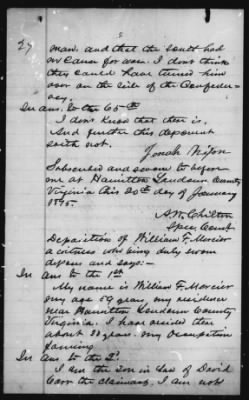 27
man. and that the south had
no cause for war. I don't think
they could have turned him
over on the side of the Confeder-
acy.
In ans. to the 65th
I don't know that there is.
And further this deponent
saith not.
Jonah Nixon
Subscribed and sworn to before
me at Hamilton Loudoun County
Virginia this 20th day of January
1875.
A. W. Chilton
Spec. Comr.
Deposition of William F. Mercier
a witness who being duly sworn
deposes and says:-
In Ans to the 1st
My name is William F. Mercier
my age 59 years, my residence
near Hamilton Loudoun County
Virginia. I have resided there
about 30 years. my occupation
farming.
In Ans to the 2d
I am the son in law of David
Carr the claimant. I am not